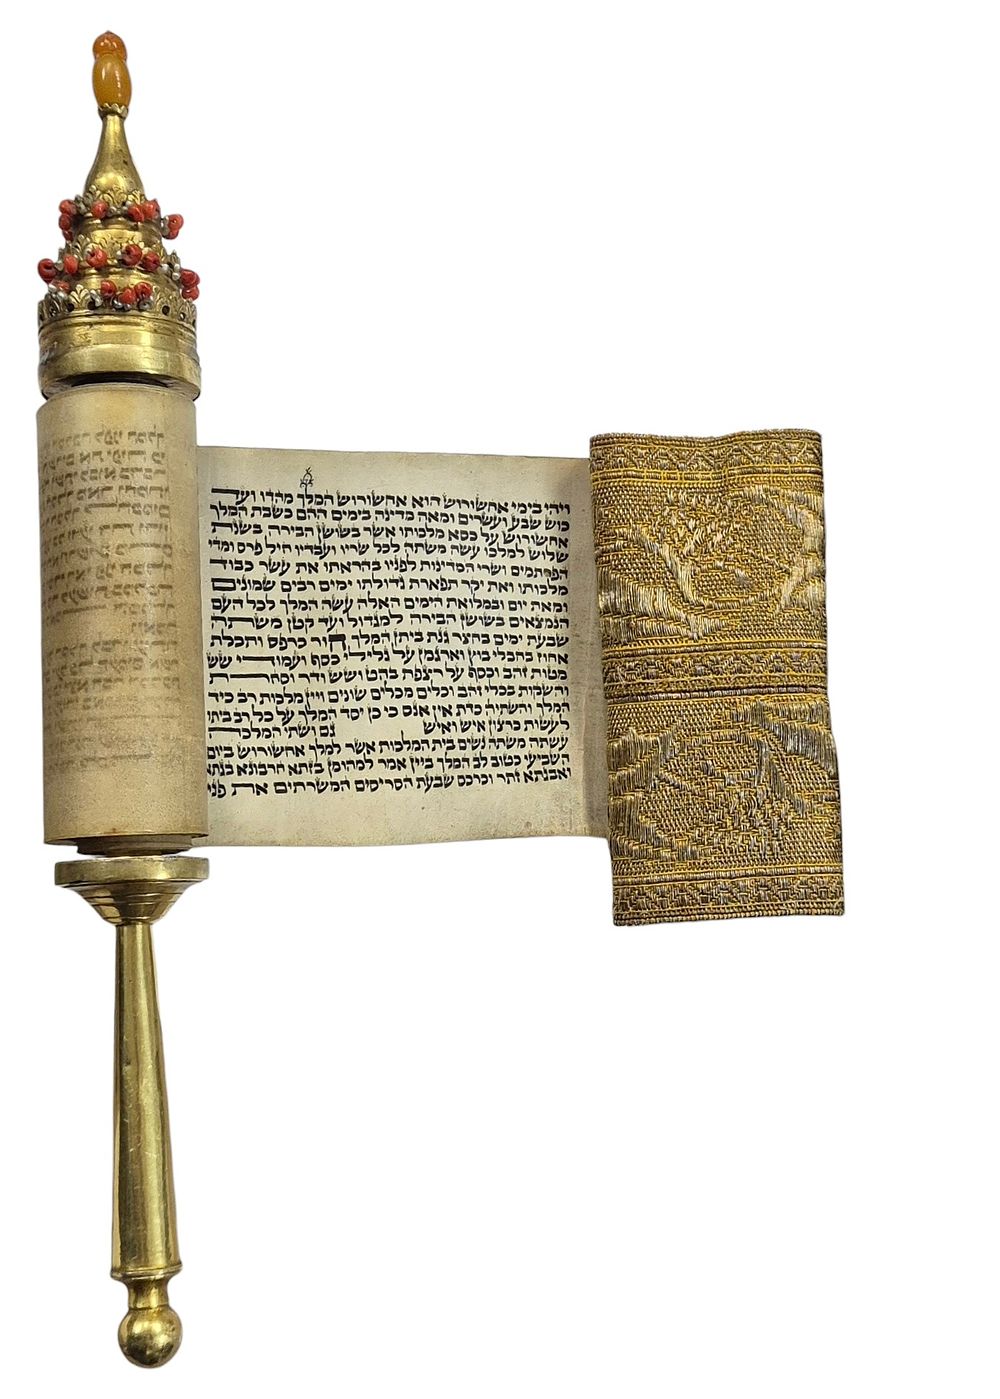 ויהי בימי אחשורוש הוא אחשורוש המלך מהדו ועד
כוש שבע ועשרים ומאה מדינה בימים ההם כשבת המלך
אחשורוש על כסא מלכותו אשר בשושן הבירה בשנת
שלוש למלכו עשה משתה לכל שריו ועבדיו חיל פרס ומדי
הפרתמים ושרי המדינות לפניו בהראתו את עשר כבוד
מלכותו ואת יקר תפארת גדולתו ימים רבים שמונים
ומאת יום ובמלואת הימים האלה עשה המלך לכל העם
הנמצאים בשושן הבירה למגדול ועד קטן משתה
שבעת ימים בחצר גנת ביתן המלך חור כרפס ותכלת
אחוז בחבלי בוץ וארגמן על גלילי כסף ועמודי שש
מטות זהב וכסף על רצפת בהט ושש ודר וסחרת
והשקות בכלי זהב וכלים מכלים שונים ויין מלכות רב כיד
המלך והשתיה כדת אין אנס כי כן יסד המלך על כל רב ביתו
לעשות כרצון איש ואיש גם ושתי המלכה
עשתה משתה נשים בית המלכות אשר למלך אחשורוש ביום
השביעי כטוב לב המלך ביין אמר למהומן בזתא חרבונא בגתא
ואבגתא זתר וכרכס שבעת הסריסים המשרתים את פני